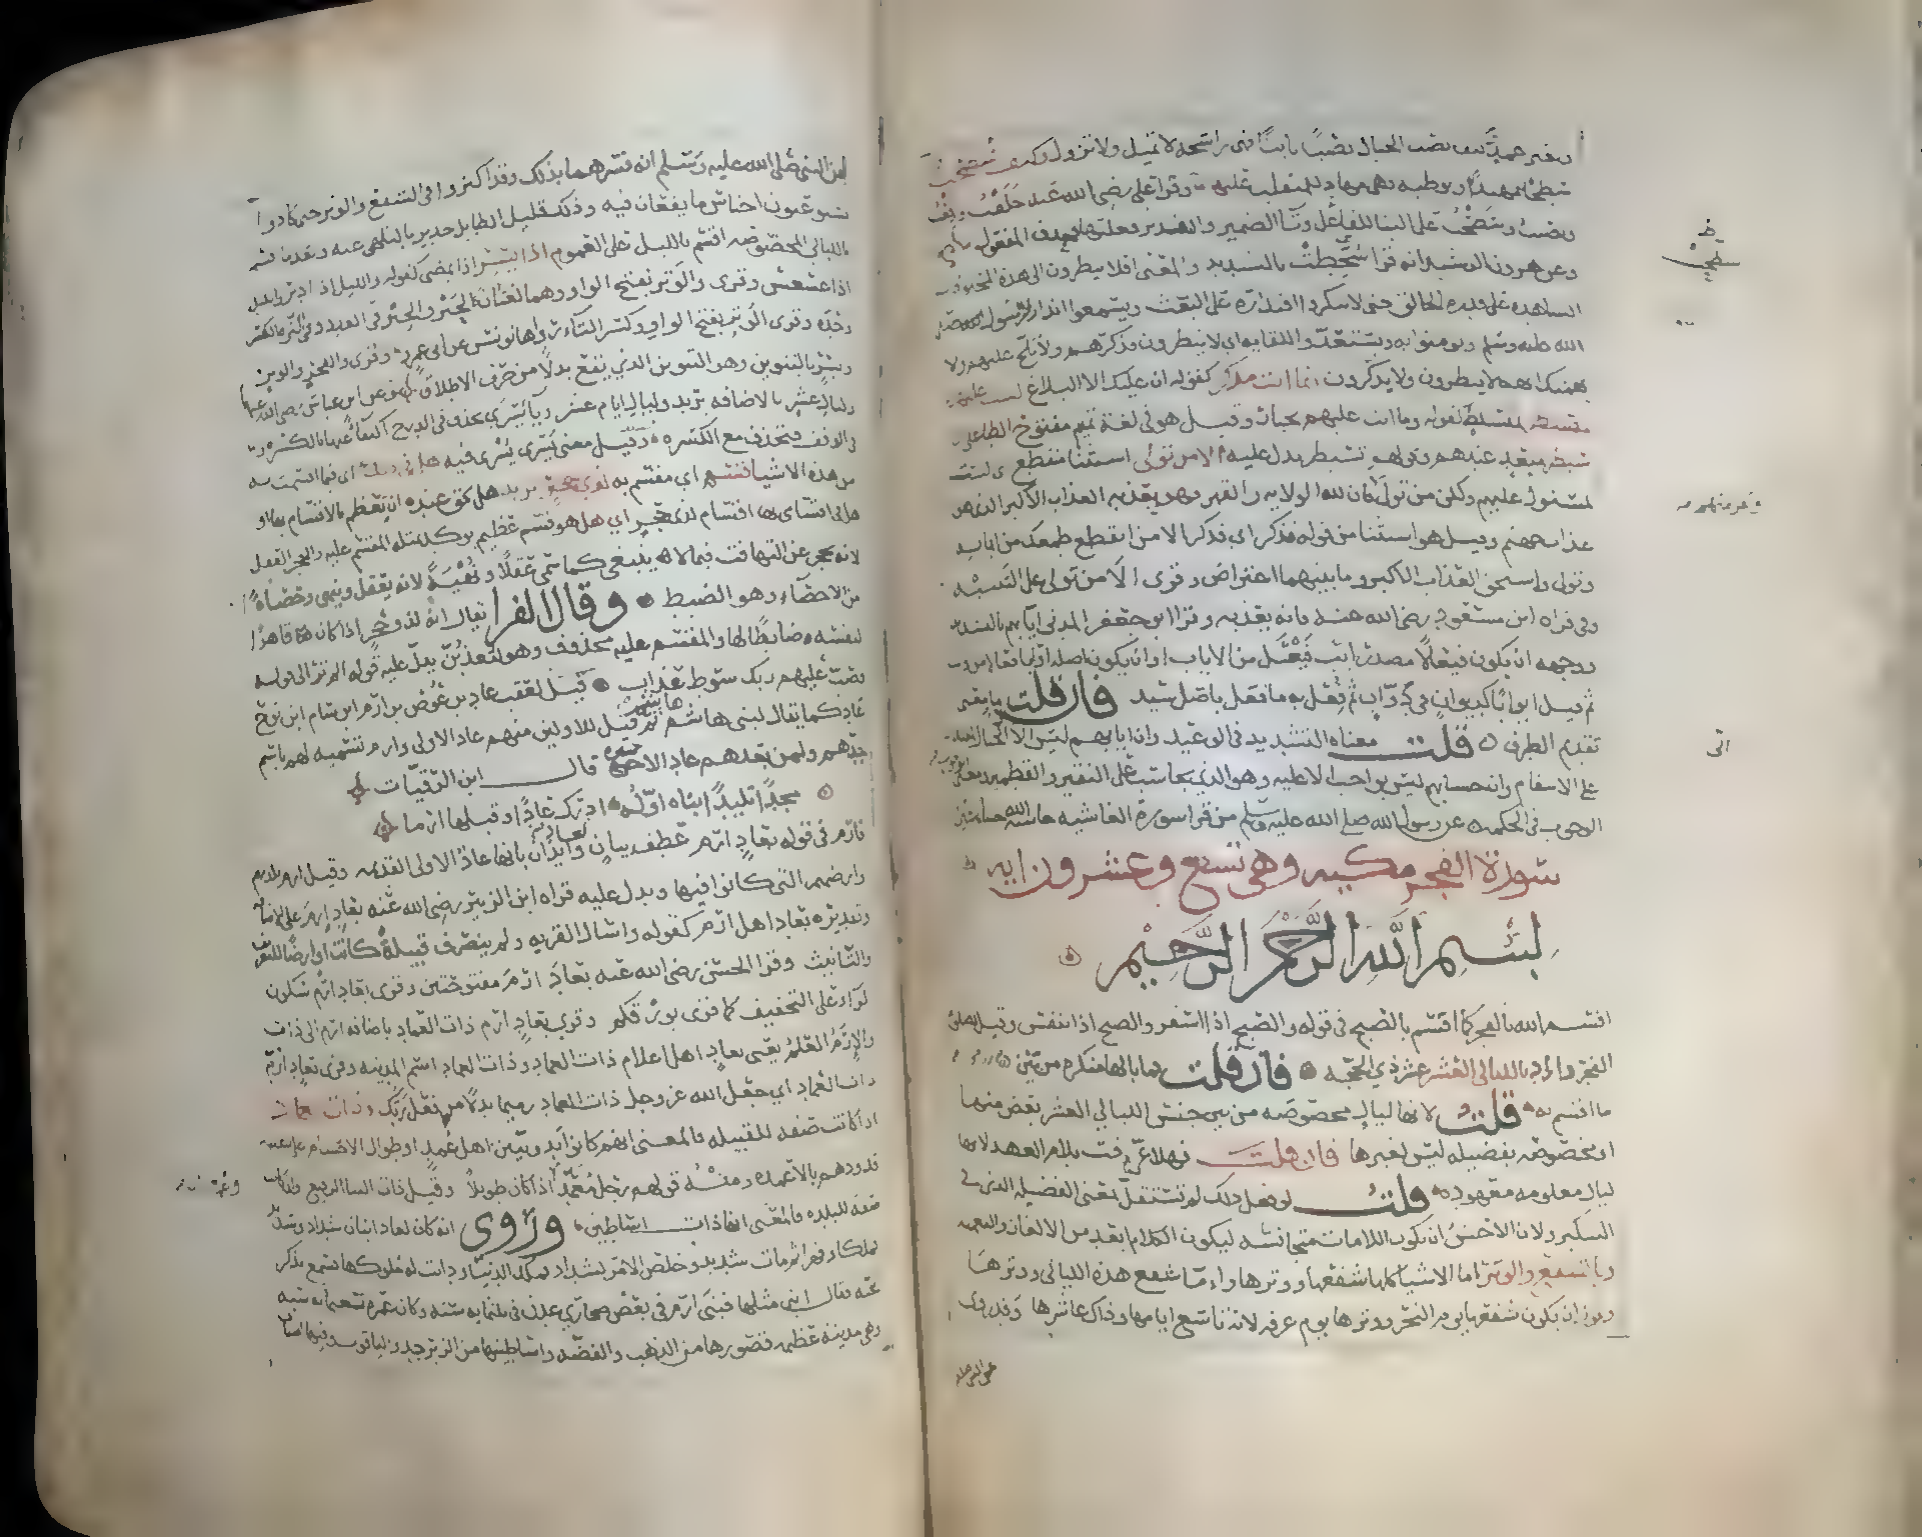 بغير عمد كيف نصبت الجبال نصبا ثابتا فهى راسخة لا تميل ولا تزول وكيف سطحت
سطحا بتمهيد وتوطية فهى مهاد للمتقلب عليها وقرا على رضى الله عنه خلقت ورفعت
ونصبت وسطحت على البنا للفاعل وتا الضمير والتقدير فعلتها فحذف المفعول
وعن هرون الرشيد انه قرا سطحت بالتشديد والمعنى افلا ينظرون الى هذه المخلوقات
الشاهدة على قدرة الخالق حتى لا ينكروا اقتداره على البعث ويسمعوا انذار الرسول صلى
الله عليه وسلم ويومنوا به ويستعدوا للقايه اى لا ينظرون فذكرهم ولا تلح عليهم ولا
يهمنك انهم لا ينظرون ولا يذكرون انما انت مذكر كقوله ان عليك الا البلاغ لست عليهم
بمسيطر بمتسلط كقوله وما انت عليهم بجبار وقيل هو فى لغة تميم مفتوح الطا على
سيطر متعد عندهم وقولهم تسيطر يدل عليه الا من تولى استثنا منقطع اى لست
بمستول عليهم ولكن من تولى فان لله الولاية والقهر فهو يعذبه العذاب الاكبر الذى هو
عذاب جهنم وقيل هو استثنا من قوله فذكر اى فذكر الا من انقطع طمعك من ايمانه
وتولى واستحق العذاب الاكبر وما بينهما اعتراض وقرى الا من تولى على التنبيه
وفى قراة ابن مسعود رضى الله عنه فانه يعذبه وقرا ابو جعفر المدنى ايابهم بالتشديد
ووجهه ان يكون فيعالا مصدر ايب فيعل من الاياب او ان يكون اصله اوابا فعالا من اوب
ثم قيل ايوابا كديوان فى دوان ثم فعل به ما فعل باصل سيد فان قلت ما معنى
تقديم الظرف قلت معناه التشديد فى الوعيد وان ايابهم ليس الا الى الجبار المقتدر
على الانتقام وان حسابهم ليس بواجب الا عليه وهو الذى يحاسب على النقير والقطمير ومعنى
الوجوب فى الحكمة عن رسول الله صلى الله عليه وسلم من قرا سورة الغاشية حاسبه الله حسابا يسيرا
سورة الفجر مكية وهى تسع وعشرون اية
بسم الله الرحمن الرحيم
اقسم الله بالفجر كما اقسم بالصبح فى قوله والصبح اذا اسفر والصبح اذا تنفس وقيل بصلاة
الفجر واراد بالليالى العشر عشر ذى الحجة فان قلت فما بالها منكرة من بين
ما اقسم به قلت لانها ليال مخصوصة من بين جنس الليالى العشر بعض منها
او مخصوصة بفضيلة ليس لغيرها فان قلت فهلا عرفت بلام العهد لانها
ليال معلومة معهودة قلت لو فعل ذلك لم تستقل بمعنى الفضيلة الذى فى
التنكير ولان الاحسن ان تكون اللامات متجانسة ليكون الكلام ابعد من الالغاز والتعمية
وبالشفع والوتر اما الاشيا كلها شفعها ووترها واما شفع هذه الليالى ووترها
ويجوز ان يكون شفعها يوم النحر ووترها يوم عرفة لانه تاسع ايامها وذاك عاشرها وقد روى
عن النبى صلى
عن النبى صلى الله عليه وسلم انه فسرهما بذلك وقد اكثروا فى الشفع والوتر حتى كادوا
يستوعبون اجناس ما يقعان فيه وذلك قليل الطايل جدير بالتلهى عنه وبعد ما قسم
بالليالى المخصوصة اقسم بالليل على العموم اذا يسر اذا يمضى كقوله والليل اذ ادبر والليل
اذا عسعس وقرى والوتر بفتح الواو وهما لغتان كالحبر والحبر فى العدد وفى الترة الكسر
وحده وقرى الوتر بفتح الواو وكسر التاء رواها يونس عن ابى عمرو وقرى والفجر والوتر
ويسر بالتنوين وهو التنوين الذى يقع بدلا من حرف الاطلاق وعن ابن عباس رضى الله عنهما
وليال عشر بالاضافة يريد وليال ايام عشر وياء يسرى تحذف فى الدرج اكتفا عنها بالكسرة و
فى الوقف فتحذف مع الكسرة وقيل معنى يسرى يسرى فيه هل فى ذلك اى فيما اقسمت به
من هذه الاشيا قسم اى مقسم به لذى حجر يريد هل يحق عنده ان تعظم بالاقسام بها او
هل فى اقسامى بها اقسام لذى حجر اى هل هو قسم عظيم يوكد بمثله المقسم عليه والحجر العقل
لانه يحجر عن التهافت فيما لا ينبغى كما سمى عقلا ونهية لانه يعقل وينهى وحصاة
من الاحصاء وهو الضبط وقال الفرا يقال انه لذو حجر اذا كان قاهرا
لنفسه ضابطا لها والمقسم عليه محذوف وهو لتعذبن يدل عليه قوله الم تر الى قوله
فصب عليهم ربك سوط عذاب قيل لعقب عاد بن عوص بن ارم ابن سام ابن نوح
عاد كما يقال لبنى هاشم هاشم ثم قيل للاولين منهم عاد الاولى وارم تسمية لهم باسم
جدهم ولمن بعدهم عاد الاخيرة قال ابن الرقيات
مجدا تليدا بناه اوله ادرك عادا وقبلها ارما
فارم فى قوله بعاد ارم عطف بيان لعاد وايذان بانها عاد الاولى القديمة وقيل ارم بلدتهم
وارضهم التى كانوا فيها ويدل عليه قراة ابن الزبير رضى الله عنه بعاد ارم على الاضافة
وتقديره بعاد اهل ارم كقوله واسال القرية ولم ينصرف قبيلة كانت او ارضا للتعريف
والتانيث وقرا الحسن رضى الله عنه بعاد ارم مفتوحتين وقرى بعاد ارم بسكون
الراء على التخفيف كما قرى بورقكم وقرى بعاد ارم ذات العماد باضافة ارم الى ذات
والارم العلم يعنى بعاد اهل اعلام ذات العماد وذات العماد اسم المدينة وقرى بعاد ارم
ذات العماد اى جعل الله عز وجل ذات العماد رميما بدلا من فعل ربك وذات العماد
اذا كانت صفة للقبيلة فالمعنى انهم كانوا بدويين اهل عمد او طوال الاجسام على تشبيه
قدودهم بالاعمدة ومنه قولهم رجل معمد اذا كان طويلا وقيل ذات البنا الرفيع وان كانت
صفة للبلدة فالمعنى انها ذات اساطين وروى انه كان لعاد ابنان شداد وشديد
فملكا وقهرا ثم مات شديد وخلص الامر لشداد فملك الدنيا ودانت له ملوكها فسمع بذكر
الجنة فقال ابنى مثلها فبنى ارم فى بعض صحارى عدن فى ثلثماية سنة وكان عمره تسعماية سنة
وهى مدينة عظيمة قصورها من الذهب والفضة واساطينها من الزبرجد والياقوت وفيها اصناف